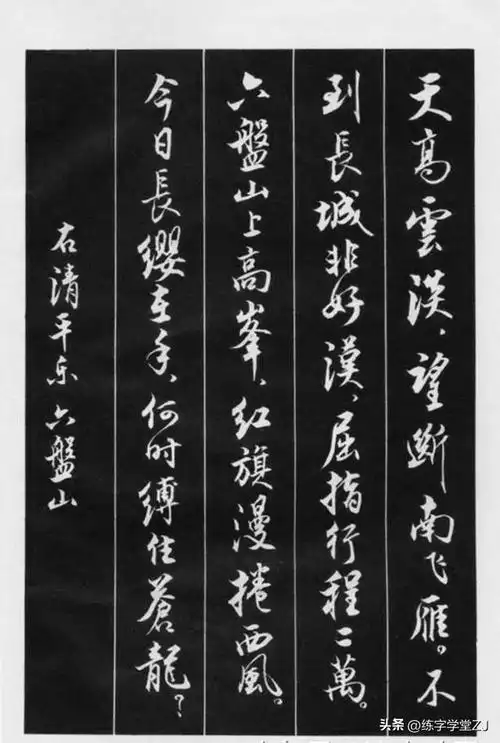 天高雲淡，望斷南飞雁。不
到長城非好漢，屈指行程二萬。
六盤山上高峯，红旗漫捲西風。
今日長缨在手，何时縛住蒼龍？
右清平乐六盤山
头条 @练字学堂ZJ